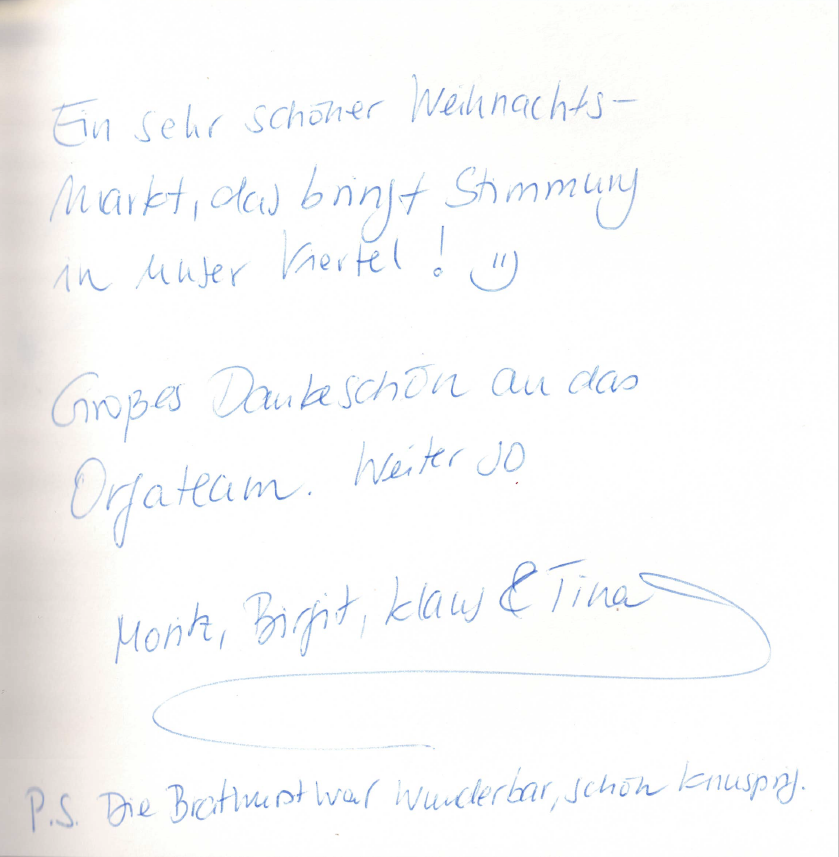 Ein sehr schöner Weihnachts-
Markt, das bringt Stimmung
in unser Viertel! :)
Großes Dankeschön an das
Orgateam. Weiter so
Moritz, Birgit, Klaus & Tina
P.S. Die Bratwurst war wunderbar, schön knusprig.